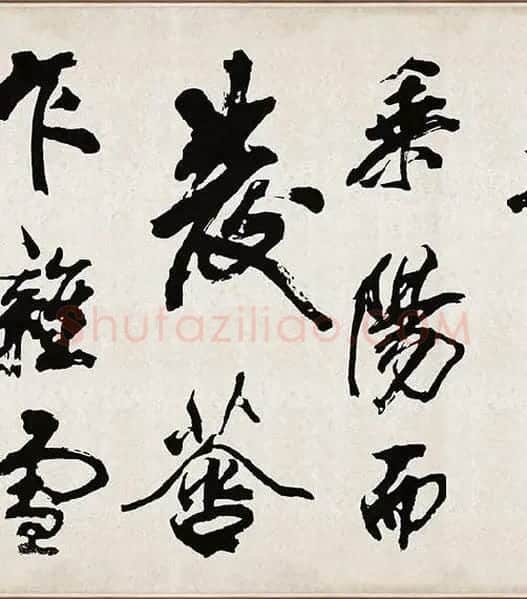 乘陽而
發
乍雜雪
Shufaziliao.COM